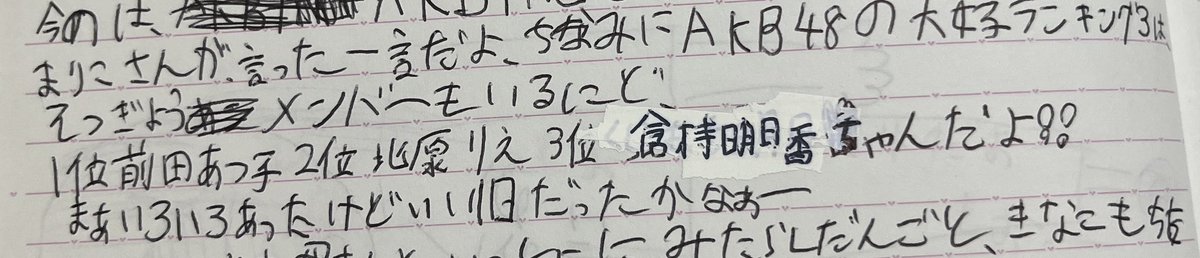 今のは、AKB
まりこさんが、言った一言だよ、ちなみにAKB48の大好ランキング3は、
そつぎょうメンバーもいるにど、
1位前田あつ子2位北原りえ 3位 倉持明日香ちゃんだよ!?
まぁいろいろあったけどいい1日だったかなぁー
みたらしだんごと、きなこもち